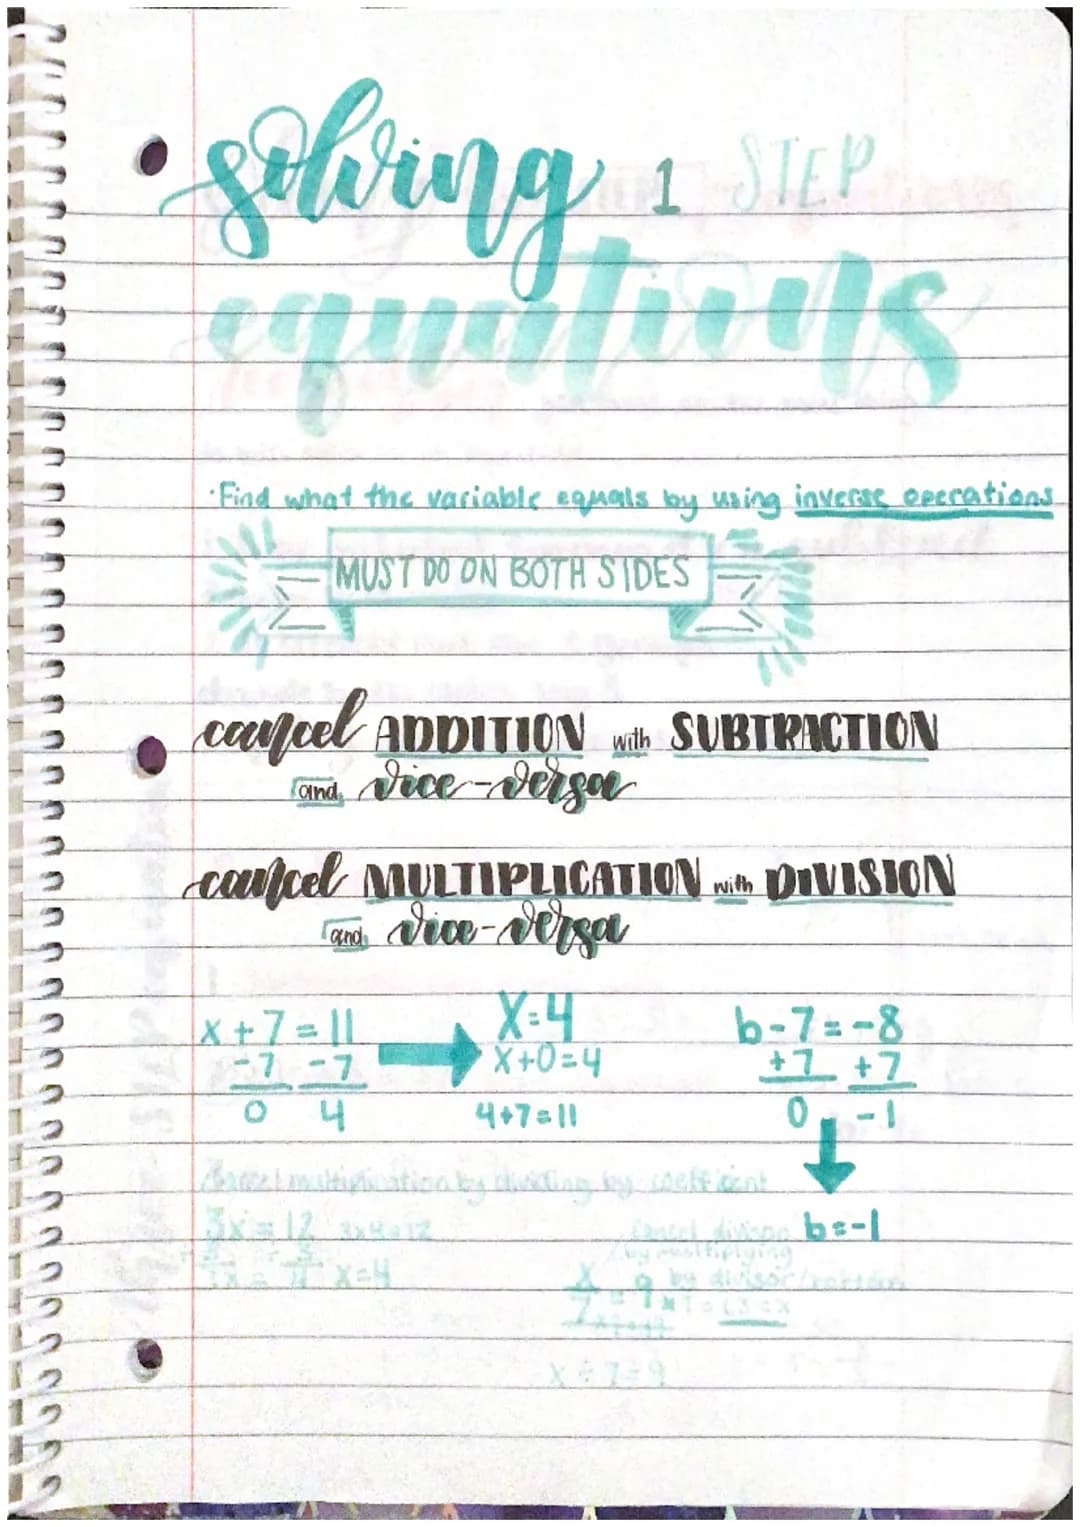 solving 1 STEP
equations
·Find what the variable equals by using inverse operations
MUST DO ON BOTH SIDES
cancel ADDITION with SUBTRACTION
and vice-versa
cancel MULTIPLICATION with DIVISION
and vice-versa
x+7=11
-7 -7
0 4
X=4
x+0=4
4+7=11
b-7=-8
+7 +7
0 -1
b=-1
cancel multiplication by dividing by coefficient
3x=12 3x4=12
x=4
cancel division
by multiplying
by divisor/
x/7 = 9 x7=63=x
x÷7=9